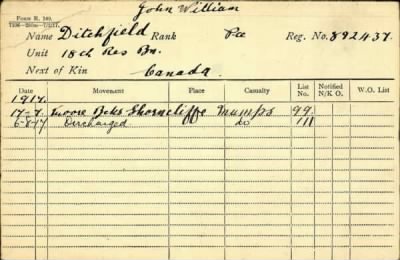 FORM R. 149.
John William
Name Ditchfield Rank Pte Reg. No. 892437.
Unit 18th Res Bn.
Next of Kin Canada.
Date Movement Place Casualty List No. Notified N/K O. W.O. List
1917.
17-7. Moore Bcks Shorncliffe Mumps 99
6-8-17 Discharged do 111